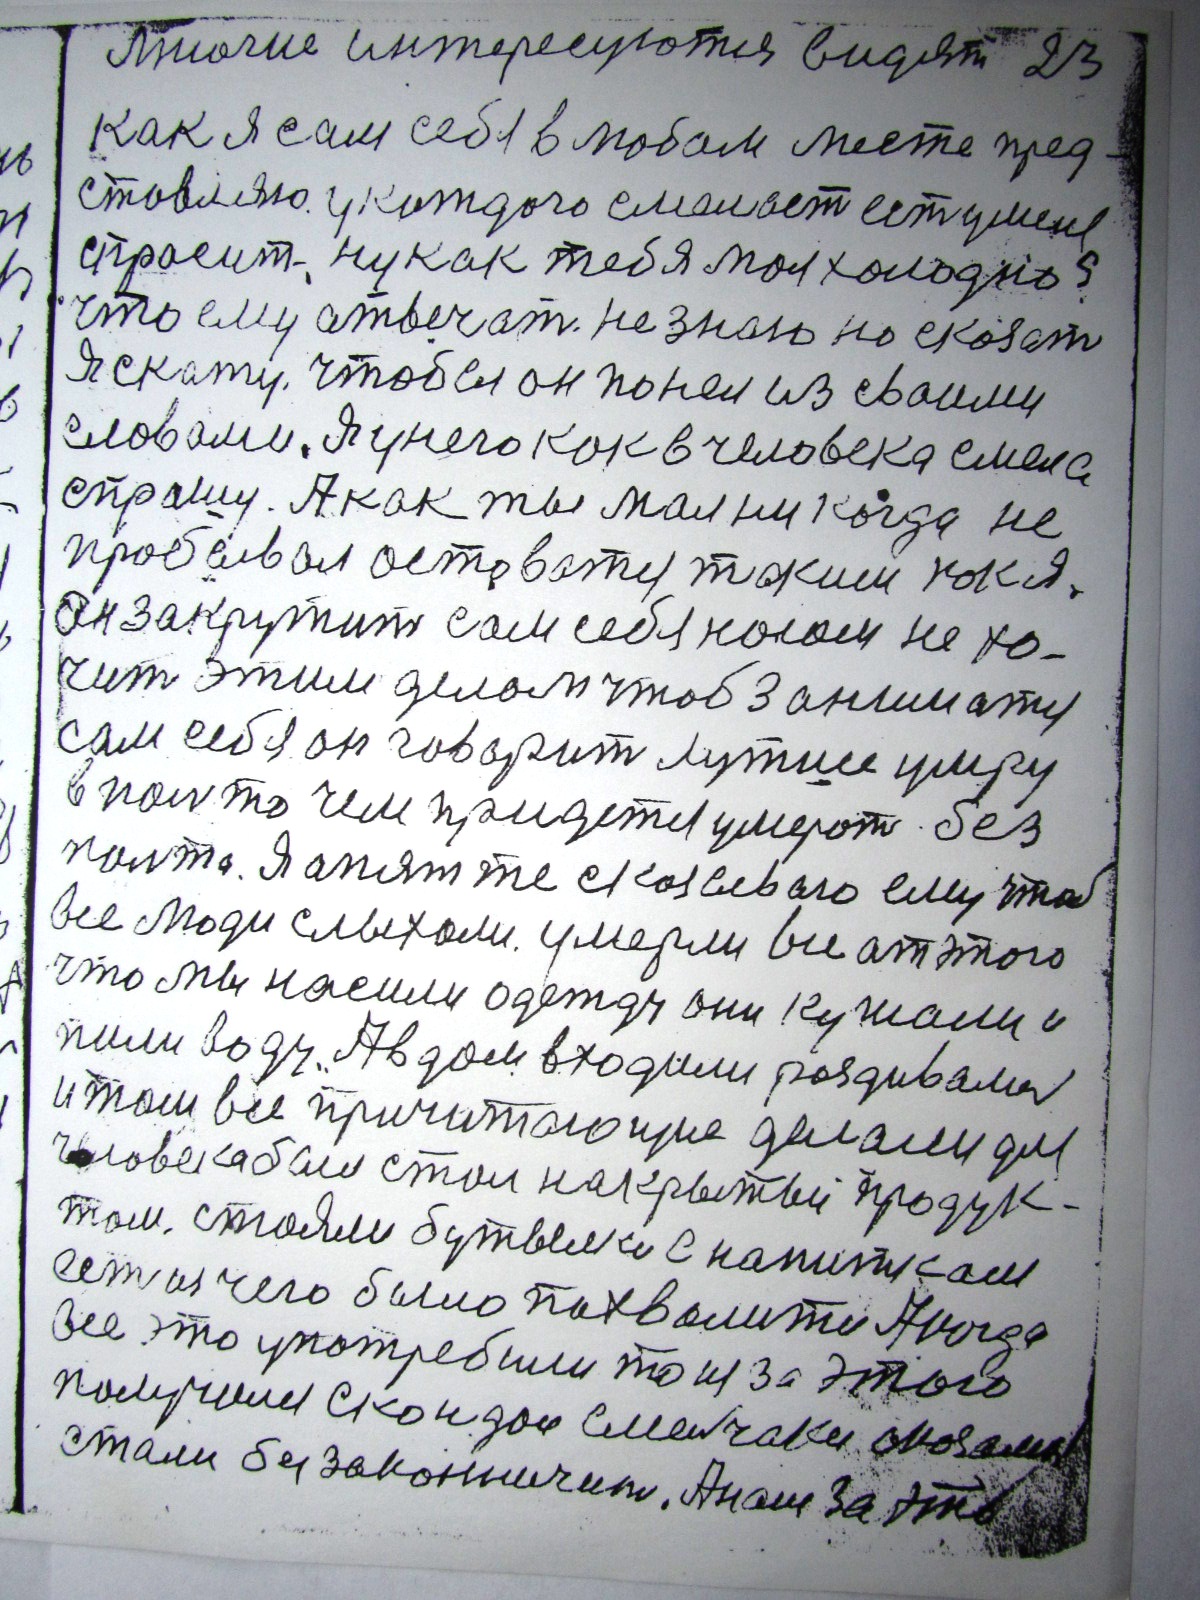 Многие интересуются видят 23
как я сам себя в любом месте пред-
ставляю. у каждого смеласт ест у меня
спросит. ну как тебя мол холодно?
что ему атвечат. не знаю но сказат
Я скажу. чтобы он понел из своими
словами. Я у него как в человека смела
спрашу. А как ты мол ни когда не
пробывал оставатся таким как я.
Он закрутит сам себя носом не хо-
чит этим делом чтоб заниматся
сам себя он говорит лутше умру
в полто чем придется умерат без
полта. Я апят же сказываю ему чтоб
все люди слыхали. умерли все ат этого
что мы насили одежду они кушали и
пили воду. А в дом входили раздивались
и там все причитающие делали для
человека был стол накрытый продук-
том. стояли бутылки с напитками
ест из чего было похвалится А когда
все это употребили то из за этого
получился скандал смелчаки оказались
стали безаконничит. А нам за это